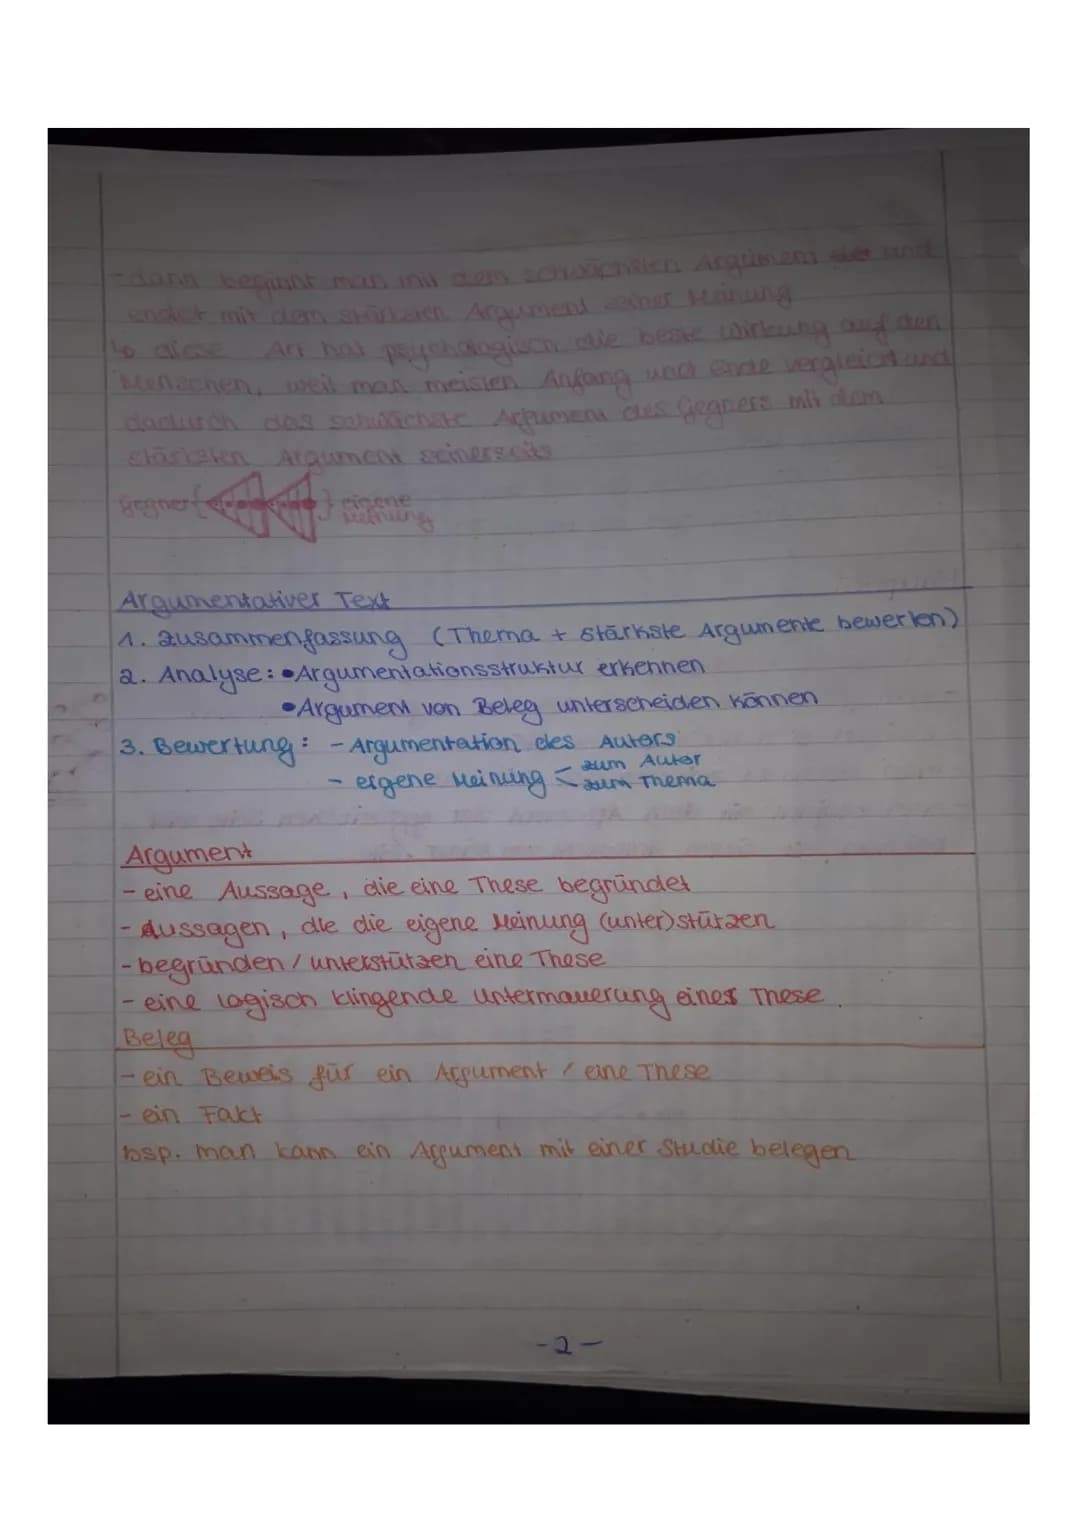 - dann beginnt man mit dem schwächsten Argument der und
endet mit dem stärksten Argument seiner Meinung
↳ diese Art hat psychologisch die beste Wirkung auf den
Menschen, weil man meisten Anfang und Ende vergleicht und
dadurch das schwächste Argument des Gegners mit dem
stärksten Argument seinerseits
Gegner { } eigene
Meinung
Argumentativer Text
1. Zusammenfassung (Thema + stärkste Argumente bewerten)
2. Analyse: • Argumentationsstruktur erkennen
• Argument von Beleg unterscheiden können
3. Bewertung: - Argumentation des Autors
- eigene Meinung < zum Autor
zum Thema
Argument
- eine Aussage, die eine These begründet
- Aussagen, die die eigene Meinung (unter)stützen
- begründen / unterstützen eine These
- eine logisch klingende Untermauerung einer These.
Beleg
- ein Beweis für ein Argument / eine These
- ein Fakt
bsp. man kann ein Argument mit einer Studie belegen
- 2 -